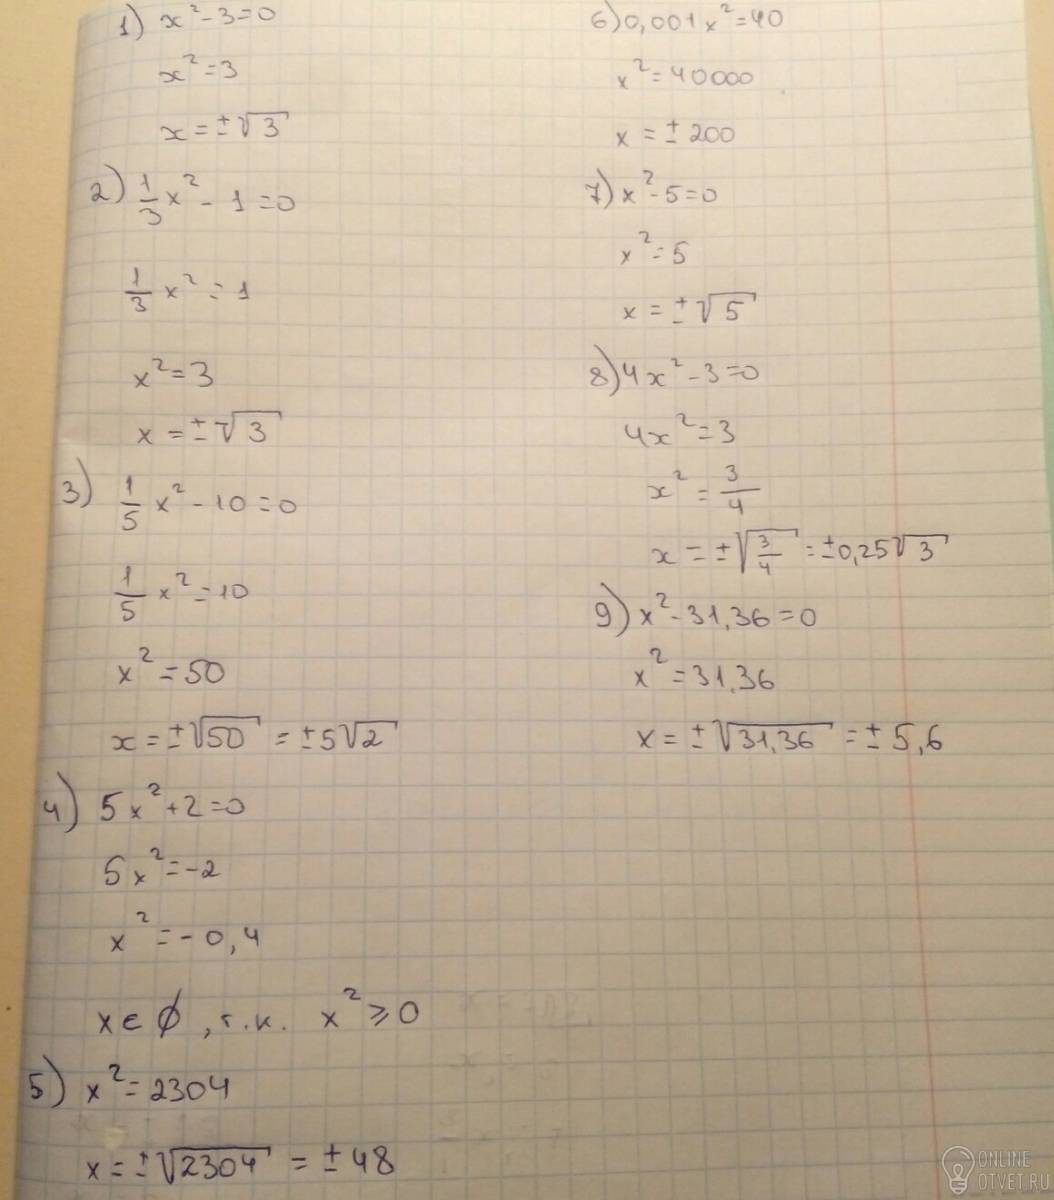 1) x² - 3 = 0
x² = 3
x = ±√3
2) 1/3 x² - 1 = 0
1/3 x² = 1
x² = 3
x = ±√3
3) 1/5 x² - 10 = 0
1/5 x² = 10
x² = 50
x = ±√50 = ±5√2
4) 5x² + 2 = 0
5x² = -2
x² = -0,4
x ∈ ∅, т.к. x² ⩾ 0
5) x² = 2304
x = ±√2304 = ±48
6) 0,001x² = 40
x² = 40000
x = ±200
7) x² - 5 = 0
x² = 5
x = ±√5
8) 4x² - 3 = 0
4x² = 3
x² = 3/4
x = ±√3/4 = ±0,25√3
9) x² - 31,36 = 0
x² = 31,36
x = ±√31,36 = ±5,6
ONLINE
OTVET.RU